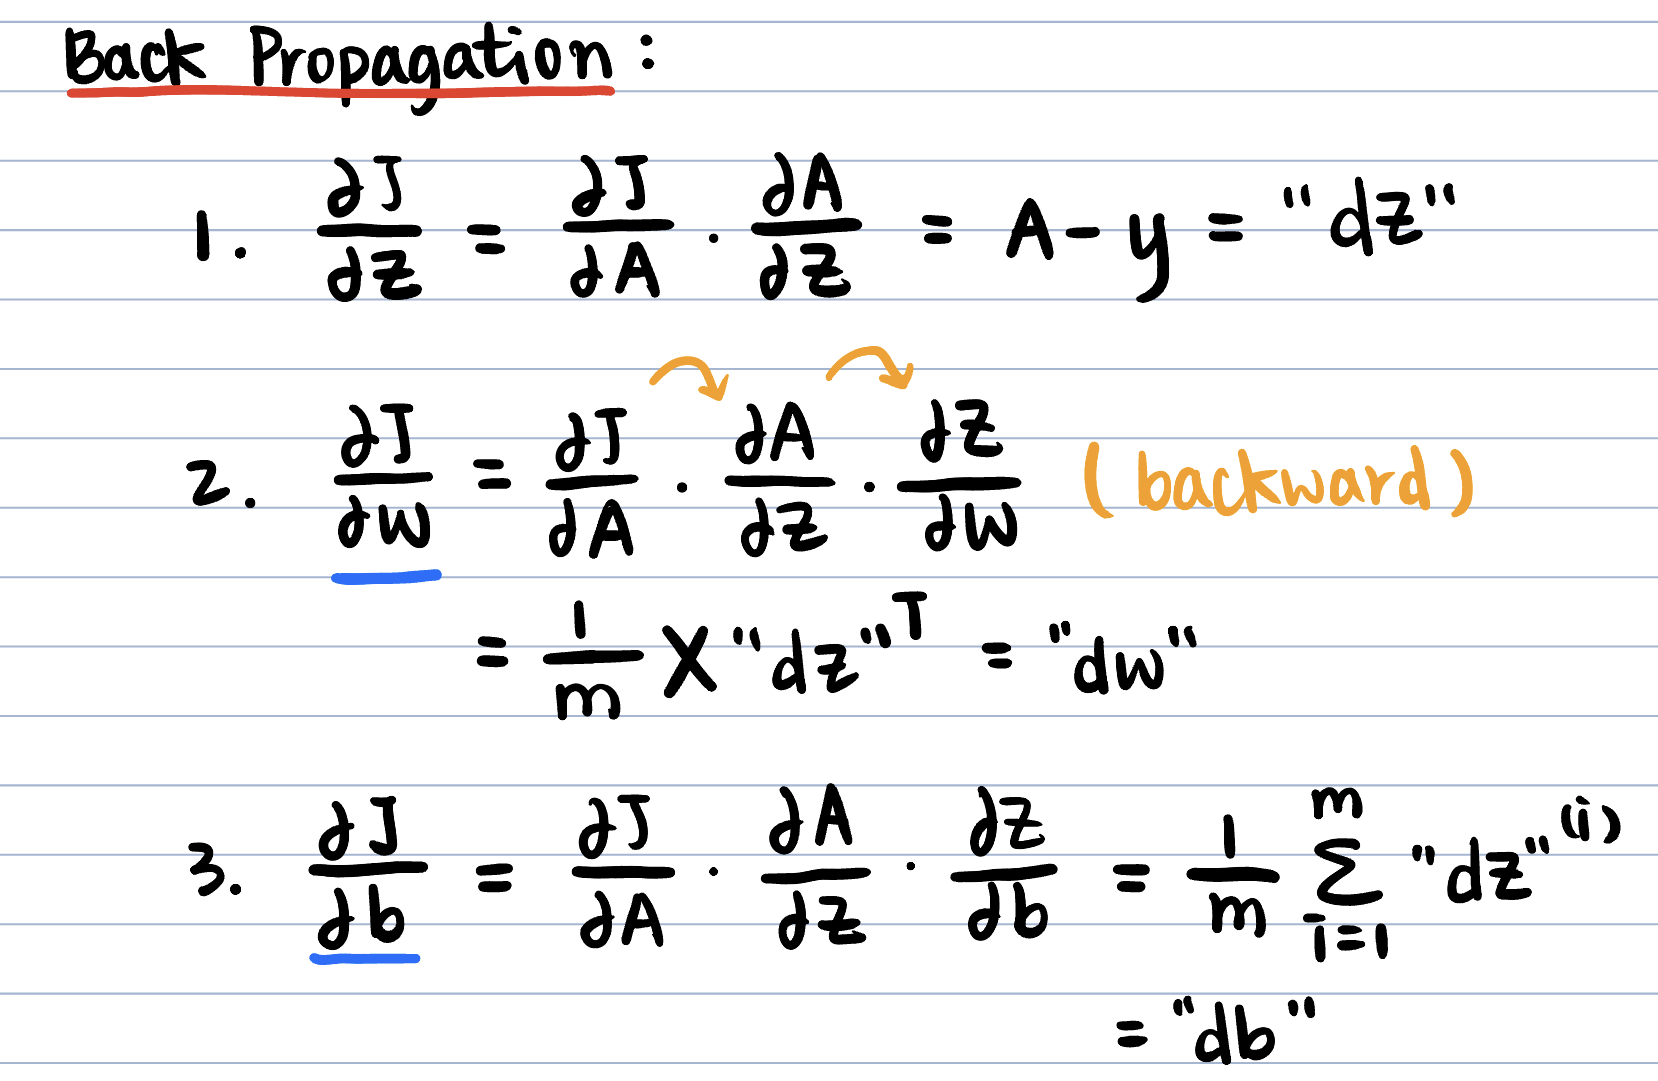 Back Propagation :
1. ∂J/∂z = ∂J/∂A · ∂A/∂z = A - y = "dz"
2. ∂J/∂w = ∂J/∂A · ∂A/∂z · ∂z/∂w (backward)
= 1/m X "dz"ᵀ = "dw"
3. ∂J/∂b = ∂J/∂A · ∂A/∂z · ∂z/∂b = 1/m Σ_{i=1}^{m} "dz"⁽ⁱ⁾
= "db"